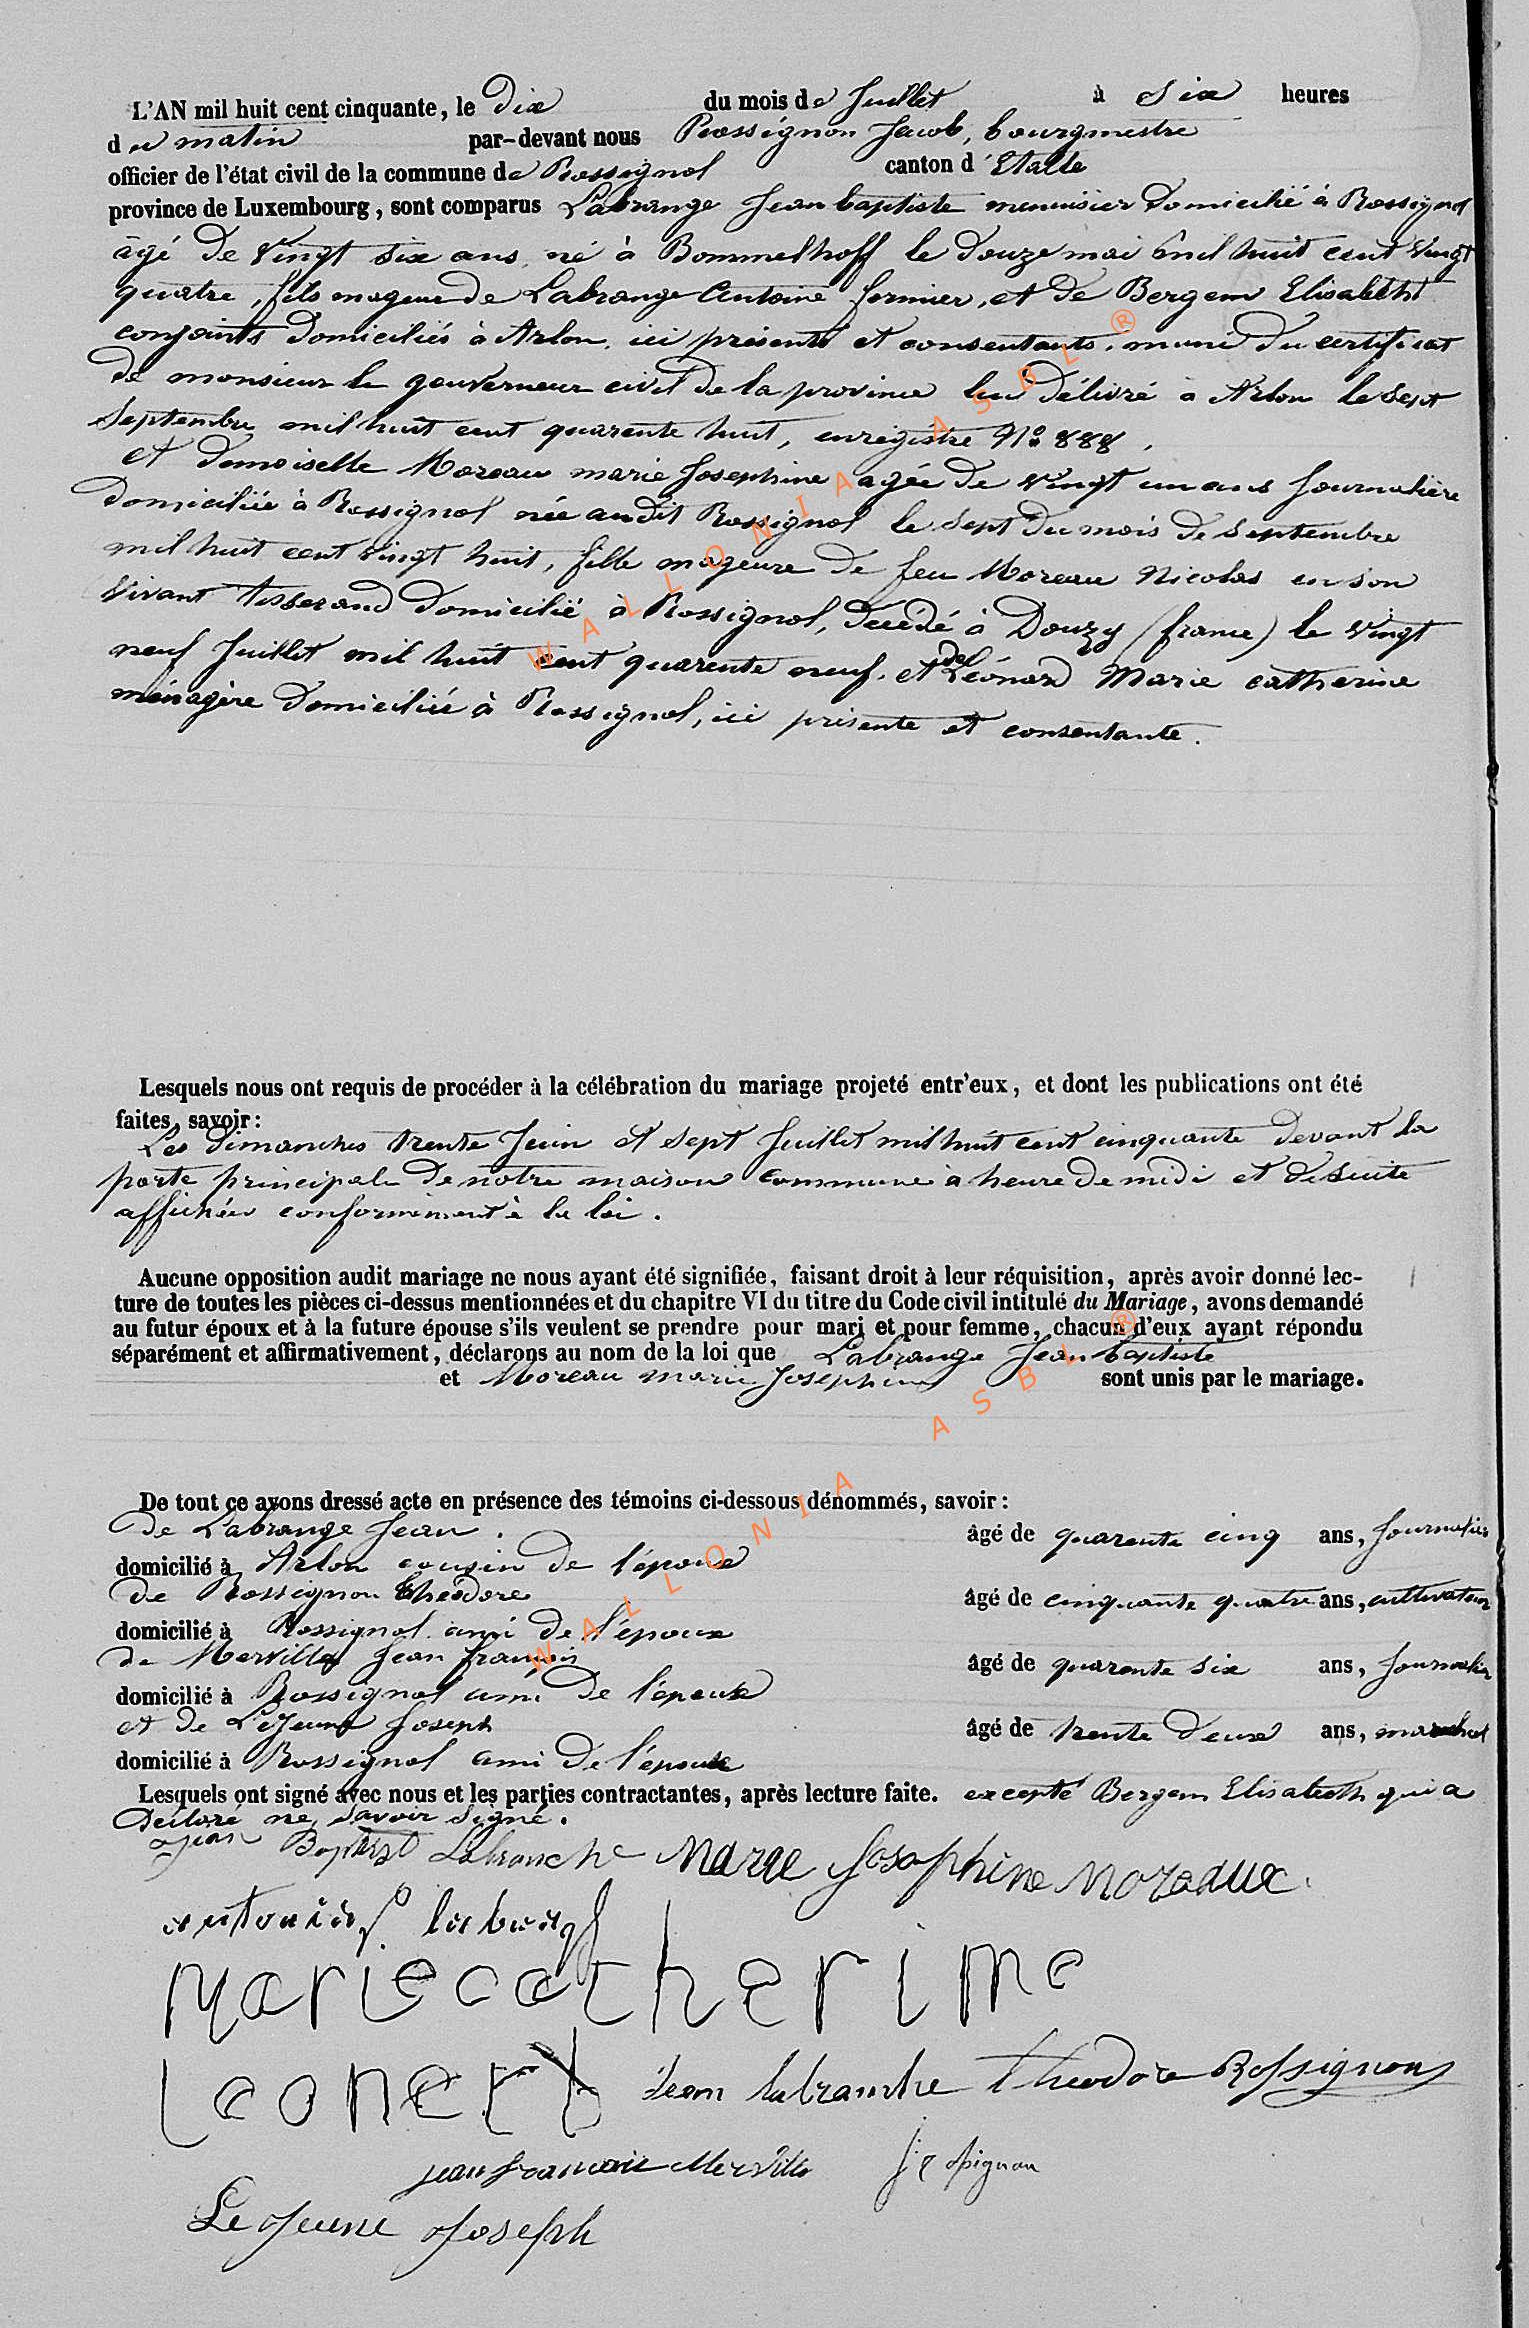 L'AN mil huit cent cinquante, le dix du mois de Juillet à Six heures
du matin par-devant nous Rossignon Jacob, bourgmestre
officier de l'état civil de la commune de Rossignol canton d'Etalle
province de Luxembourg, sont comparus Labrange Jean baptiste menuisier domicilié à Rossignol
âgé de vingt six ans, né à Bommelhoff le douze mai mil huit cent vingt
quatre, fils mageur de Labrange Antoine fermier, et de Bergem Elisabeth
conjoints domiciliés à Arlon, ici présents et consentants, muni du certificat
de monsieur le gouverneur civil de la province lui délivré à Arlon le Sept
Septembre mil huit cent quarante huit, enregistré N° 888,
et demoiselle Moreau marie Josephine agée de vingt un ans Journalière
domiciliée à Rossignol née audit Rossignol le Sept du mois de Septembre
mil huit cent vingt huit, fille mageure de feu Moreau Nicolas en son
vivant tisserand domicilié à Rossignol, décédé à Douzy (france) le vingt
neuf Juillet mil huit cent quarante neuf, et de Léonard Marie catherine
ménagère domiciliée à Rossignol, ici présente et consentante.
Lesquels nous ont requis de procéder à la célébration du mariage projeté entr'eux, et dont les publications ont été
faites, savoir:
Les dimanches trente Juin et Sept Juillet mil huit cent cinquante devant la
porte principale de notre maison commune à heure de midi et de suite
affichées conformément à la loi.
Aucune opposition audit mariage ne nous ayant été signifiée, faisant droit à leur réquisition, après avoir donné lec-
ture de toutes les pièces ci-dessus mentionnées et du chapitre VI du titre du Code civil intitulé du Mariage, avons demandé
au futur époux et à la future épouse s'ils veulent se prendre pour mari et pour femme, chacun d'eux ayant répondu
séparément et affirmativement, déclarons au nom de la loi que Labrange Jean baptiste
et Moreau marie Josephine sont unis par le mariage.
De tout ce avons dressé acte en présence des témoins ci-dessous dénommés, savoir:
de Labrange Jean. âgé de quarente cinq ans, Journalier
domicilié à Arlon cousin de l'époux
de Rossignon théodore âgé de cinquante quatre ans, cultivateur
domicilié à Rossignol ami de l'époux
de Merville Jean françois âgé de quarente six ans, Journalier
domicilié à Rossignol ami de l'épouse
et de LeJeune Joseph âgé de trente deux ans, marechal
domicilié à Rossignol ami de l'épouse
Lesquels ont signé avec nous et les parties contractantes, après lecture faite. excepté Bergem Elisabeth qui a
déclaré ne savoir signé.
Jean Baptist Labranche Marie Josephine Moreaux.
antonius labrang
Marie catherine
leonerd Jean labranche theodore Rossignon
jean francoic Merville J Rossignon
LeJeune Joseph
WALLONIA ASBL ®
WALLONIA ASBL ®